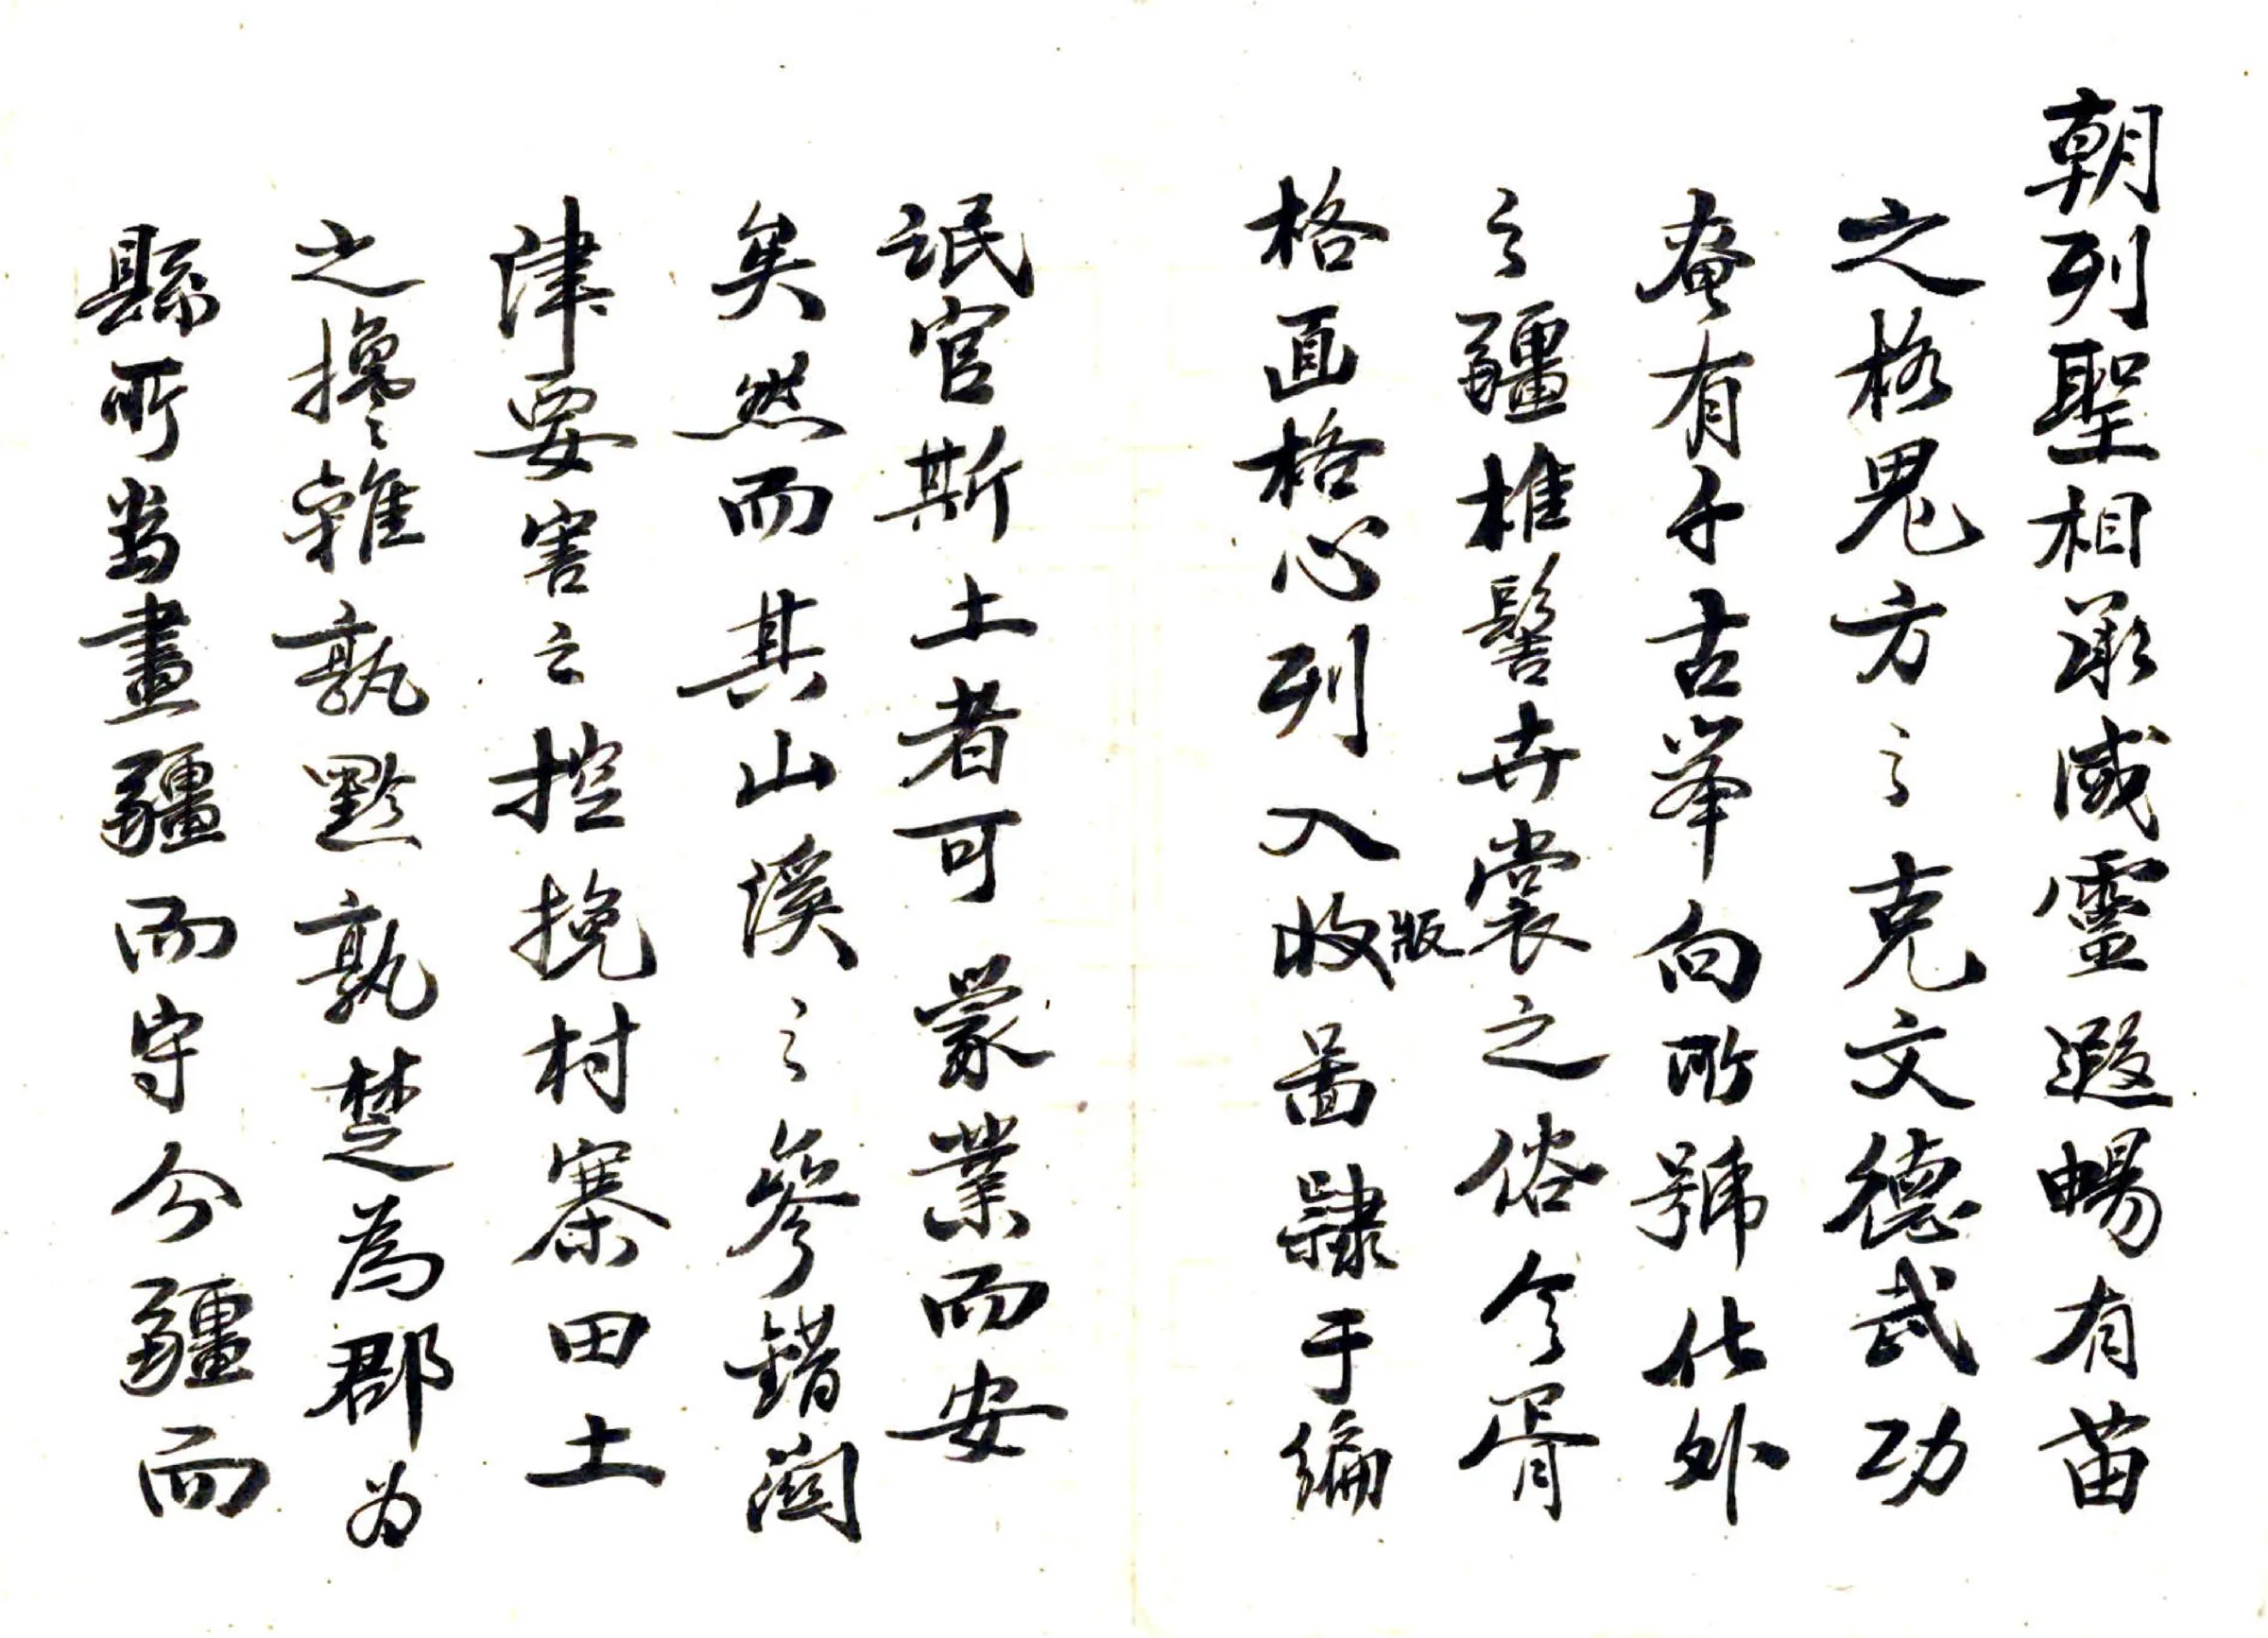 朝列聖相承威靈遐暢有苗
之格鬼方之克文德武功
奄有千古举向所號化外
之疆椎髻卉裳之俗今胥
格面格心列入版收圖隸于編
氓官斯土者可蒙業而安
矣然而其山溪之參錯關
津要害之控挽村寨田土
之攙雜孰黔孰楚為郡为
縣所當畫疆而守分疆而